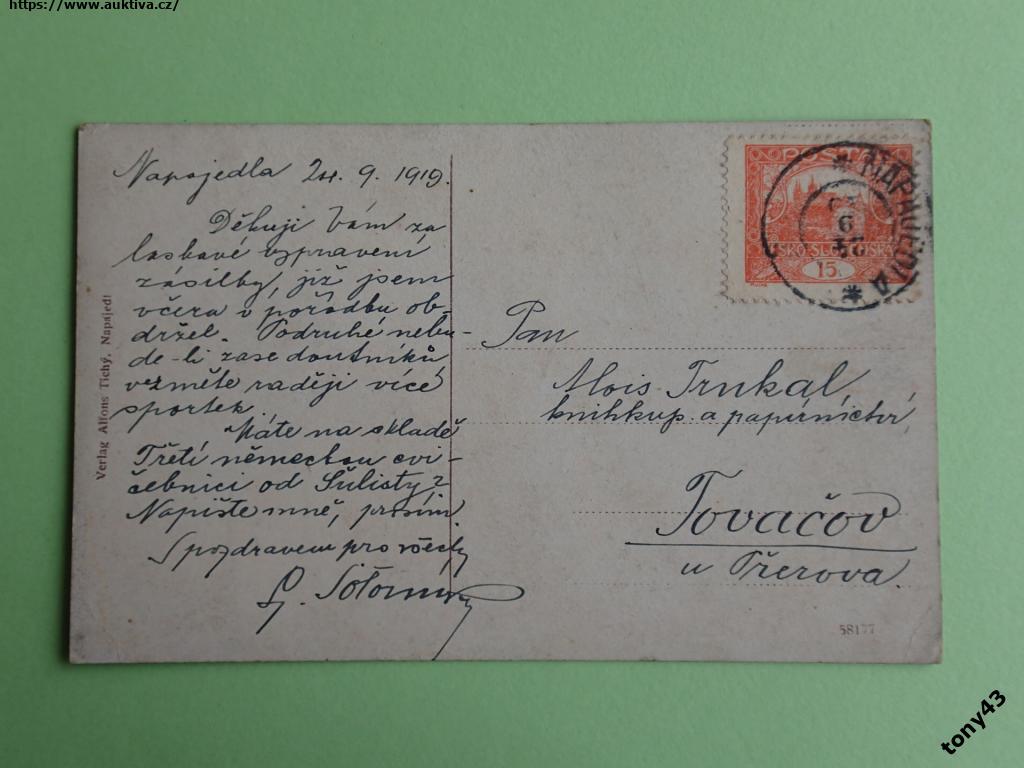 https://www.auktiva.cz/
Napajedla 24. 9. 1919.
Děkuji Vám za
laskavé vypravení
zásilky, již jsem
včera v pořádku ob-
držel. Podruhé nebu-
de-li zase doutníků
vezměte raději více
sportek.
Máte na skladě
Třetí německou cvi-
čebnici od Šulisty?
Napište mně, prosím.
S pozdravem pro všechny
Verlag Alfons Tichý, Napajedl
POŠTA
ČESKO-SLOVENSKÁ
15.
NAPAJEDLA
24
9
Pan
Alois Trnkal,
knihkup. a papírnictví,
Tovačov
u Přerova.
58177
tony43